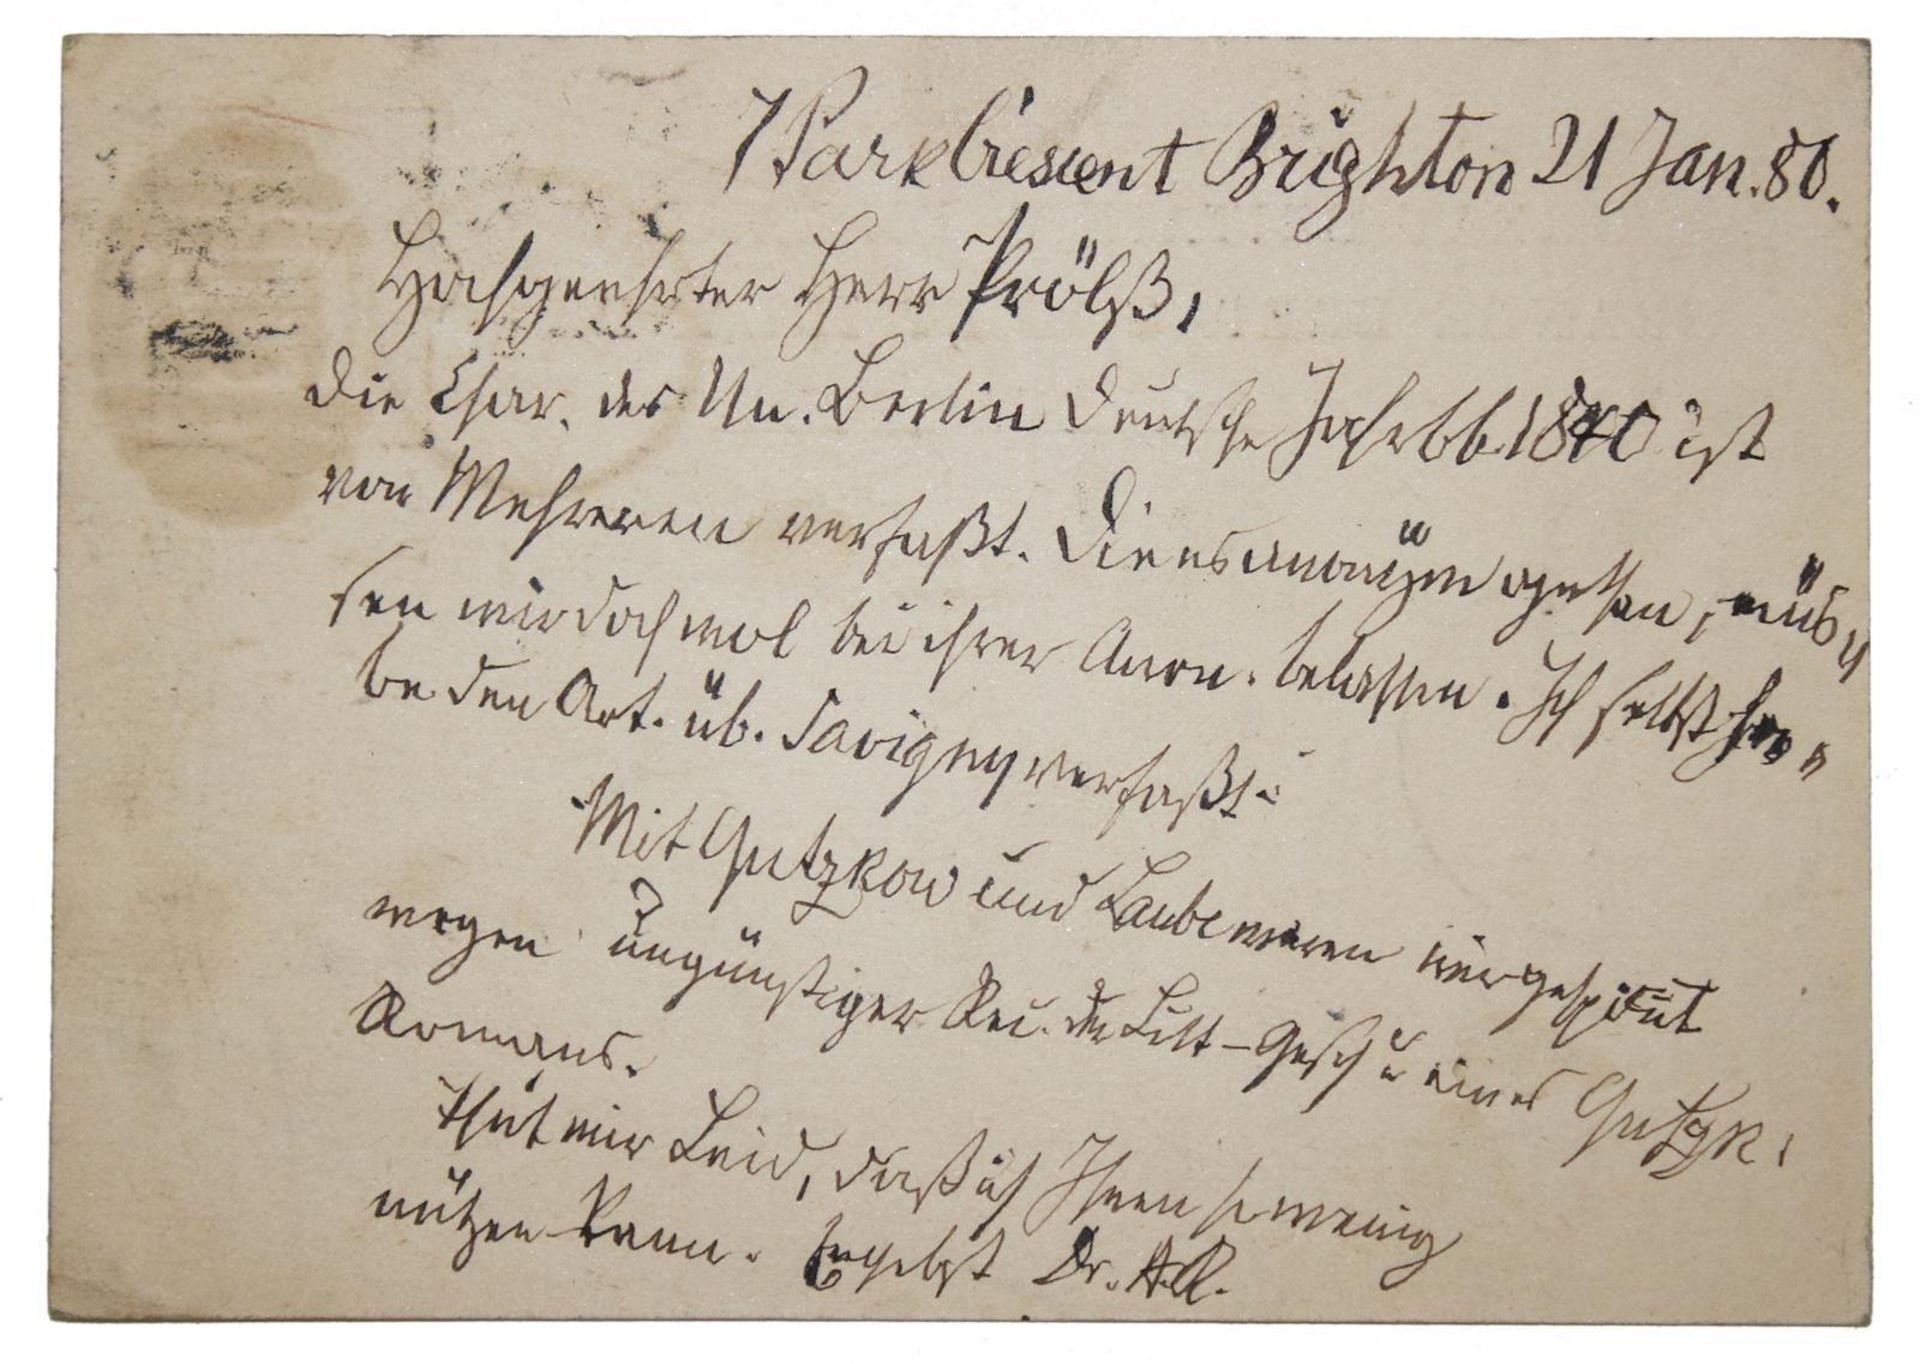 7 Park Crescent Brighton 21 Jan. 80.
Hochgeehrter Herr Prölß,
die Char. der Un. Berlin deutsche Jahrbb. 1840 ist
von Mehreren verfaßt. Die es anonym gethan, müs„
sen wir doch wol bei ihrer Anon. belassen. Ich selbst ha„
be den Art. üb. Savigny verfaßt.
Mit Gutzkow und Laube waren wir gespannt
wegen ungünstiger Rec. der Litt-Gesch u eines Gutzk.
Romans.
Thut mir Leid, daß ich Ihnen so wenig
nützen kann. Ergebst Dr. A.R.